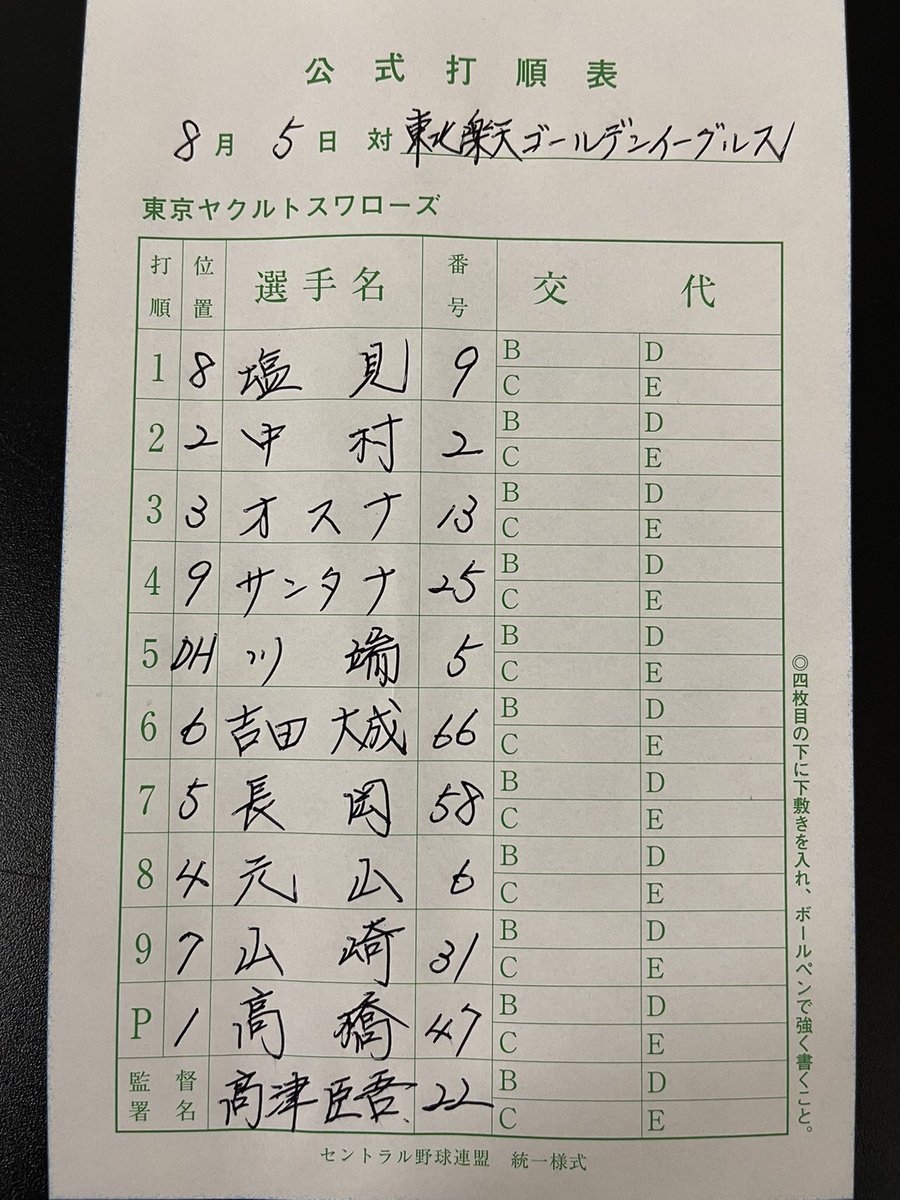 公式打順表
8月5日対東北楽天ゴールデンイーグルス
東京ヤクルトスワローズ
打順 位置 選手名 番号 交代
1 8 塩見 9 B D
C E
2 2 中村 2 B D
C E
3 3 オスナ 13 B D
C E
4 9 サンタナ 25 B D
C E
5 DH 川端 5 B D
C E
6 6 吉田大成 66 B D
C E
7 5 長岡 58 B D
C E
8 4 元山 6 B D
C E
9 7 山崎 31 B D
C E
P 1 高橋 47 B D
C E
監督署名 高津臣吾 22 B D
C E
◎四枚目の下に下敷きを入れ、ボールペンで強く書くこと。
セントラル野球連盟 統一様式